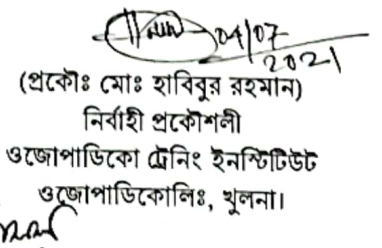 04/07
2021
(প্রকৌঃ মোঃ হাবিবুর রহমান)
নির্বাহী প্রকৌশলী
ওজোপাডিকো ট্রেনিং ইনস্টিটিউট
ওজোপাডিকোলিঃ, খুলনা।